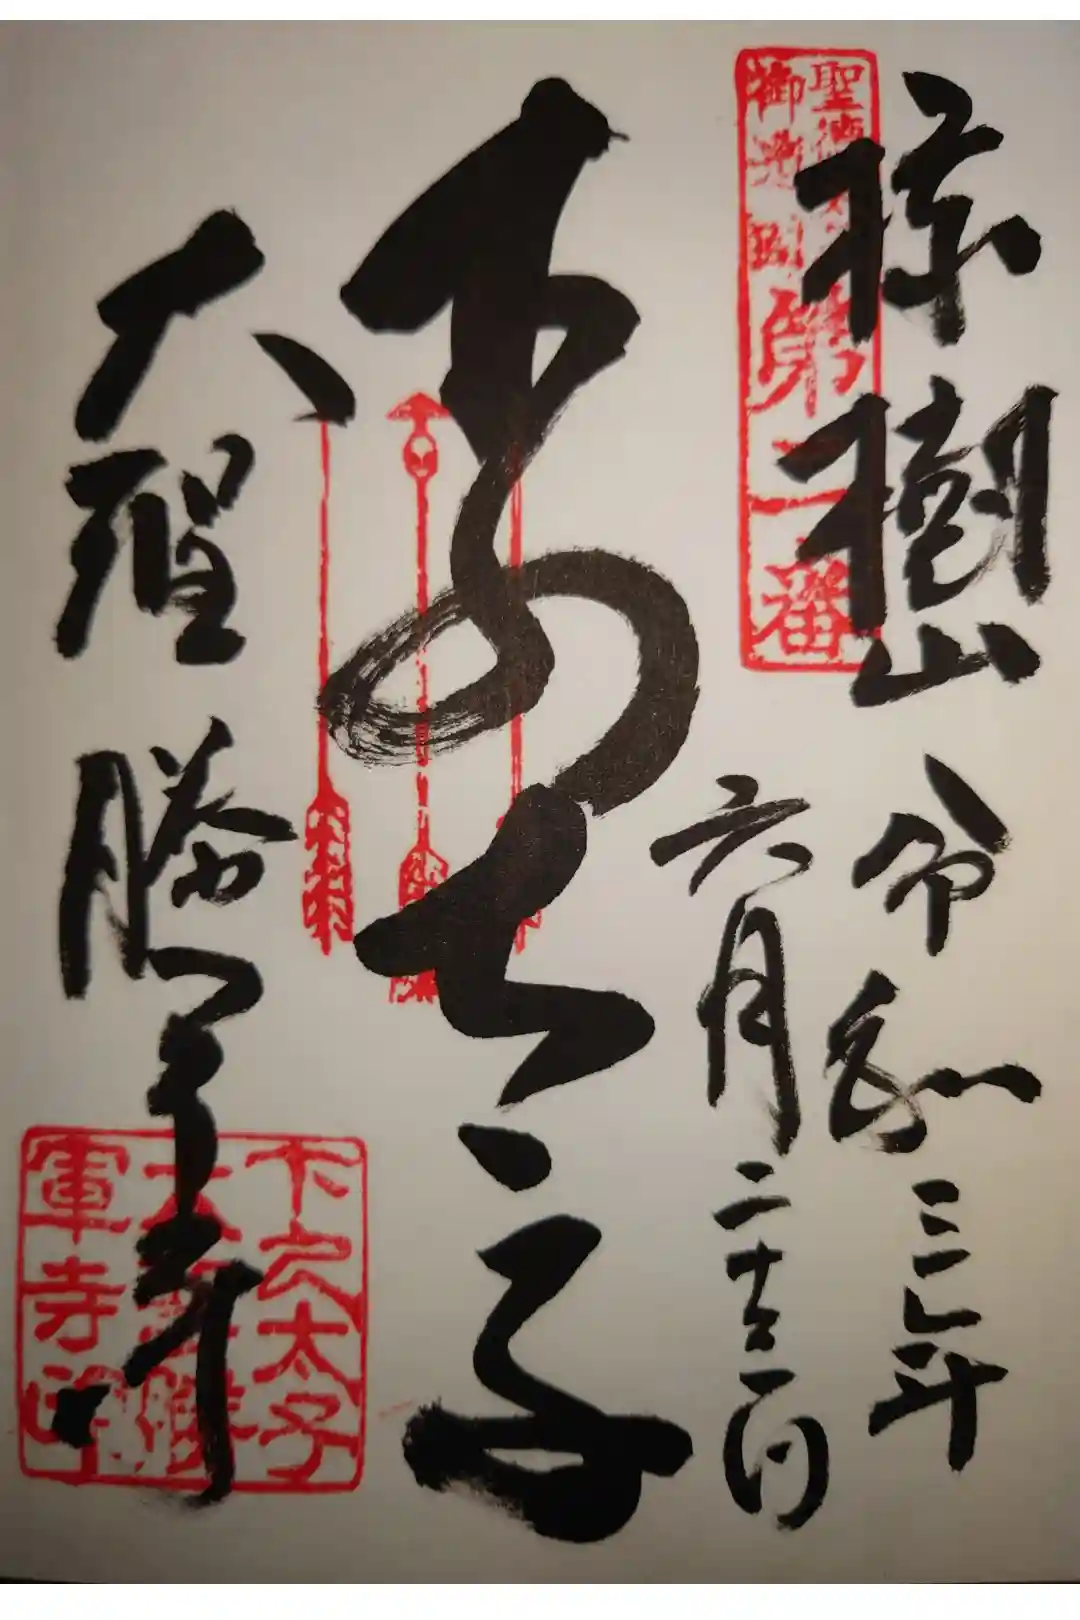 椋樹山
令和三年
六月二十二日
聖徳太子
御遺跡第二番
下の太子
大聖勝軍寺
下之太子
大聖勝
軍寺印